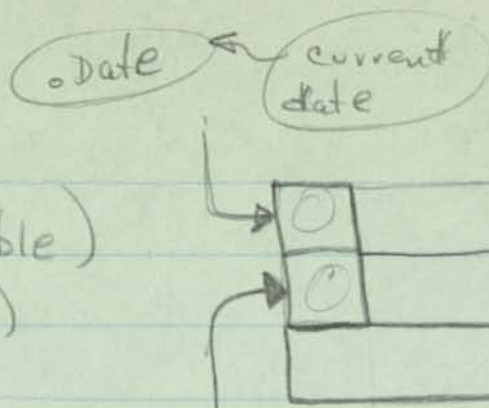 .Date
current
date
ble)
)
O
O